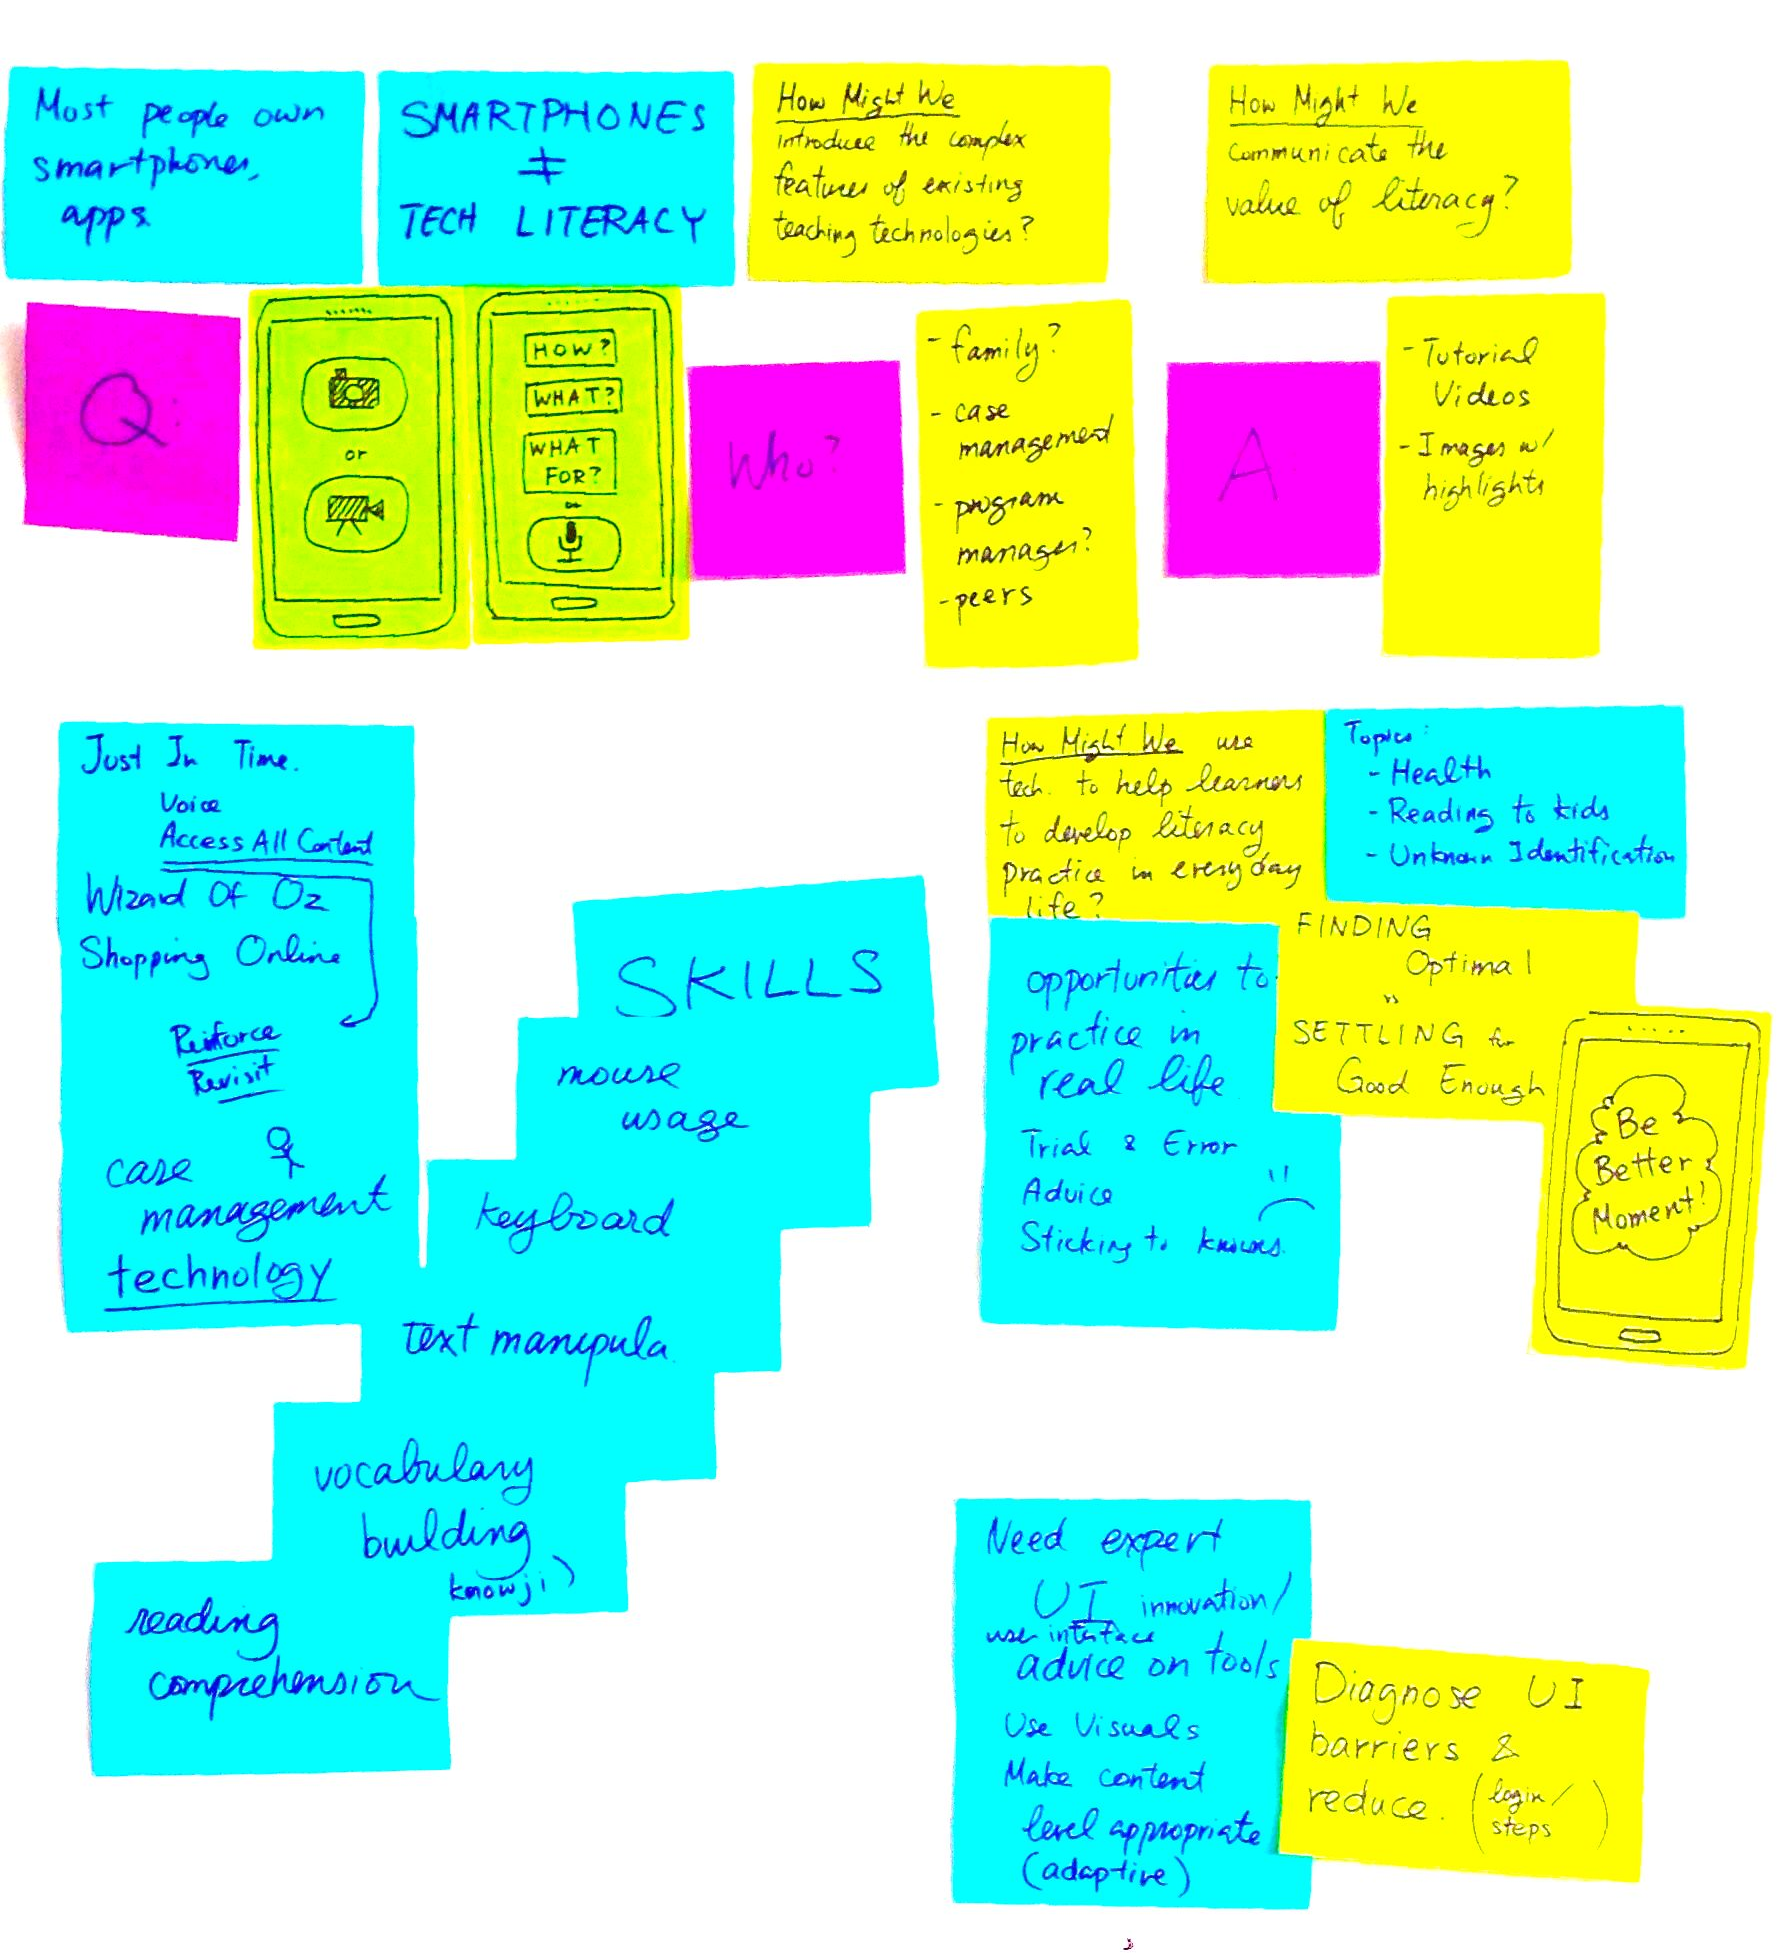 Most people own
smartphones,
apps
SMARTPHONES
≠
TECH LITERACY
How Might We
introduce the complex
features of existing
teaching technologies?
How Might We
communicate the
value of literacy?
Q:
or
HOW?
WHAT?
WHAT
FOR?
or
Who?
- family?
- case
management
- program
manager?
- peers
A
- Tutorial
Videos
- Images w/
highlights
Just In Time.
Voice
Access All Content
Wizard Of Oz
Shopping Online
Reinforce
Revisit
case
management
technology
SKILLS
mouse
usage
keyboard
text manipula.
vocabulary
building
knowji)
reading
comprehension
How Might We use
tech. to help learners
to develop literacy
practice in everyday
life?
Topics:
- Health
- Reading to kids
- Unknown Identification
opportunities to
practice in
real life
Trial & Error
Advice
Sticking to knowns.
FINDING
Optimal
vs
SETTLING for
Good Enough
Be
Better
Moment!
Need expert
UI innovation/
user interface
advice on tools
Use Visuals
Make content
level appropriate
(adaptive)
Diagnose UI
barriers &
reduce. (login/
steps)